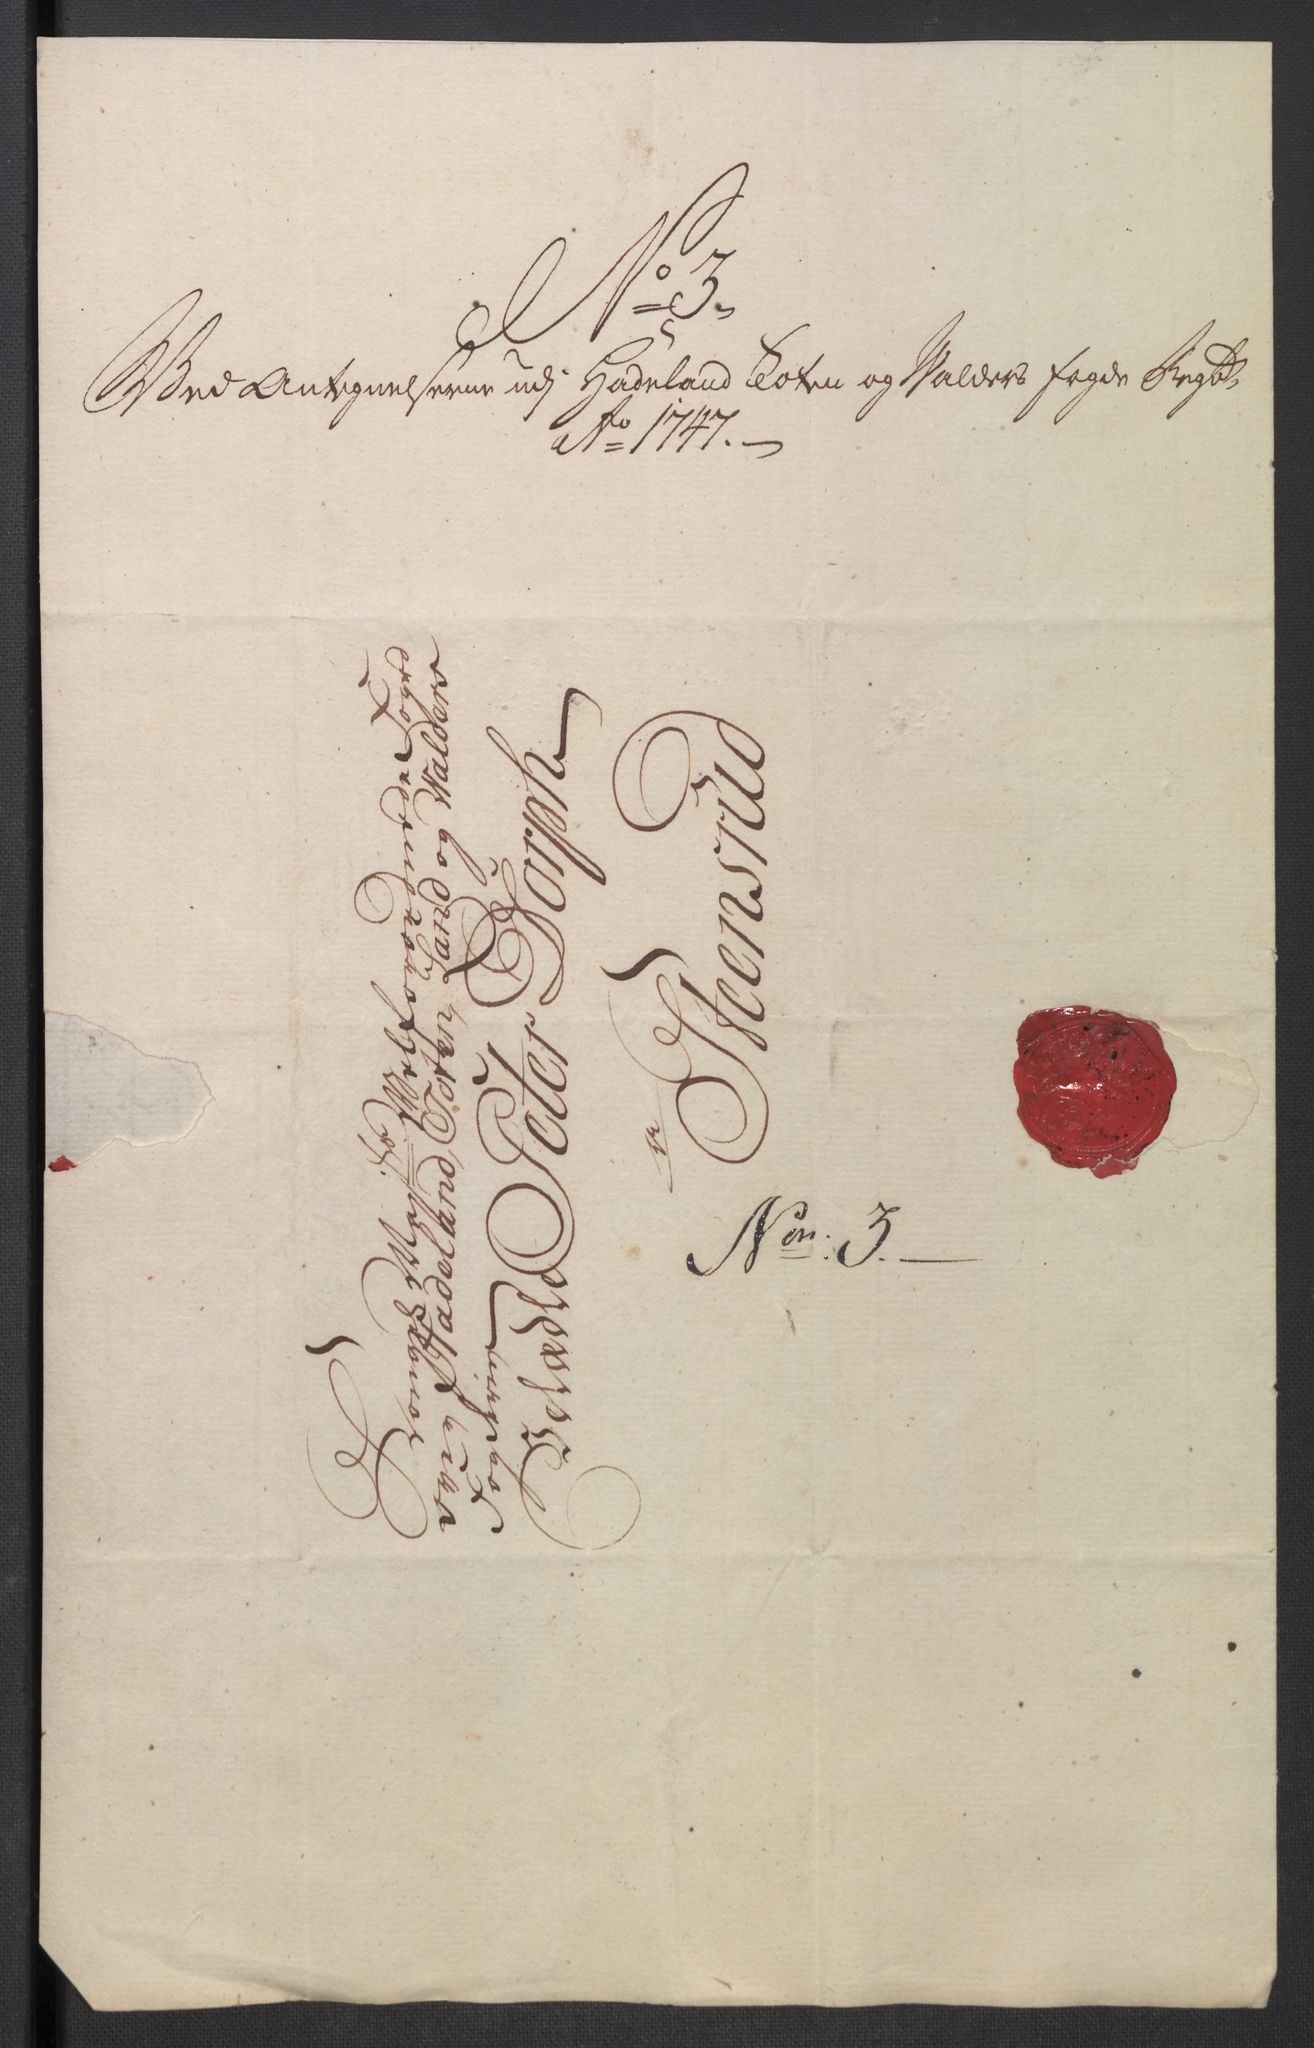 No 3
Ved Antegnelserne udj Hadeland Toten og Walders fogde Regsk.
Ao 1747.
Kongl: Mayts: Welforordnede Foged
over Hadeland, Toten, Land og Walders
Fogderie
Peter Dorph
Steensrud
Non: 3.